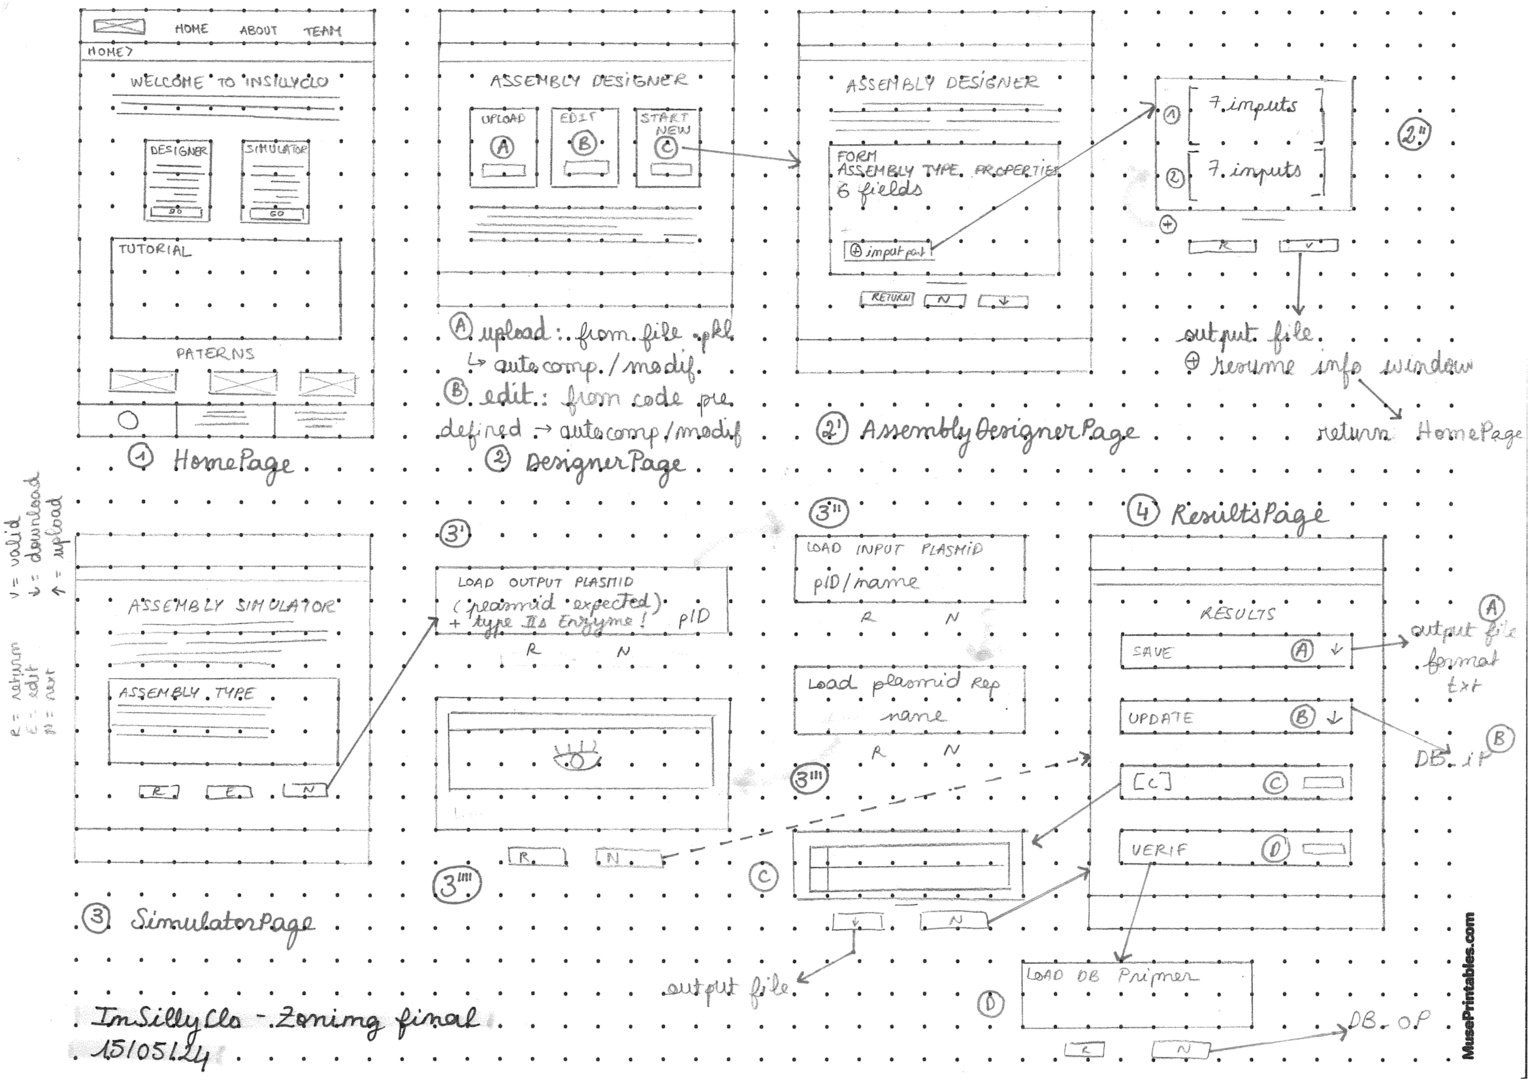 HOME ABOUT TEAM
HOME>
WELCOME TO INSILLYCLO
DESIGNER
GO
SIMULATOR
GO
TUTORIAL
PATERNS
1 HomePage
ASSEMBLY DESIGNER
UPLOAD
A
EDIT
B
START
NEW
C
A upload: from file .pkl
↳ autocomp./modif.
B edit: from code pre
defined → autocomp/modif
2 DesignerPage
ASSEMBLY DESIGNER
FORM
ASSEMBLY TYPE PROPERTIES
6 fields
+ input part
RETURN N ↓
2' AssemblyDesignerPage
1 7 inputs
2 7 inputs
+
R V
2"
output file
+ resume info window
return HomePage
v = valid
↓ = download
↑ = upload
R = return
E = edit
N = next
ASSEMBLY SIMULATOR
ASSEMBLY TYPE
R E N
3 SimulatorPage
3'
LOAD OUTPUT PLASMID
(plasmid expected)
+ type IIs Enzyme! pID
R N
R. N
3""
3"
LOAD INPUT PLASMID
pID/name
R N
Load plasmid Rep
name
R N
3"'
C
↓ N
output file
4 ResultsPage
RESULTS
SAVE A ↓
UPDATE B ↓
[C] C
VERIF D
A
output file
format
txt
B
DB iP
D
LOAD DB Primer
R N
DB OP
InSillyClo - Zoning final
15/05/24
MusePrintables.com